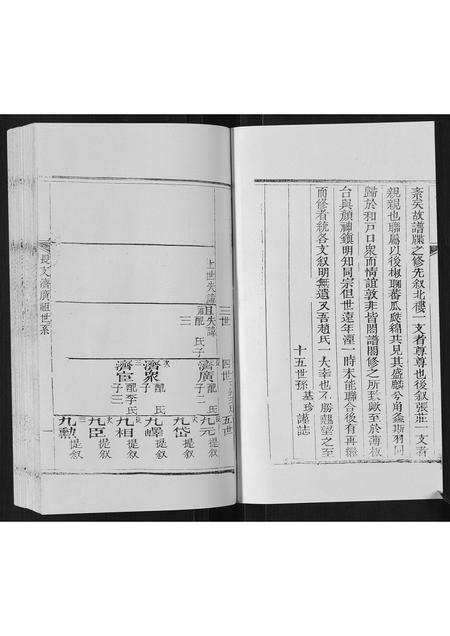 紊矣故譜牒之修先叙北樓一支者尊尊也後叙張莊一支者
親親也聯屬以後椒聊蕃瓜瓞綿其見其盛麟兮角螽斯羽同
歸於和戸口衆而情誼敦非皆閤譜閤修之所致歟至於薄板
台與顏神鎮明知同宗但世遠年湮一時未能聯合後有再繼
而修者統各支叙明無遺又吾趙氏一大幸也不勝翹望之至
十五世孫基珍謹誌
三世
上世失諱
且失諱
配氏
子三
四世
濟廣
配氏
子二
次
濟衆
配氏
子一
三
濟官
配李氏
子三
五世
九元
提叙
次
九岱
提叙
九嶧
提叙
長
九相
提叙
次
九臣
提叙
三
九勳
提叙
長支濟廣祖世系